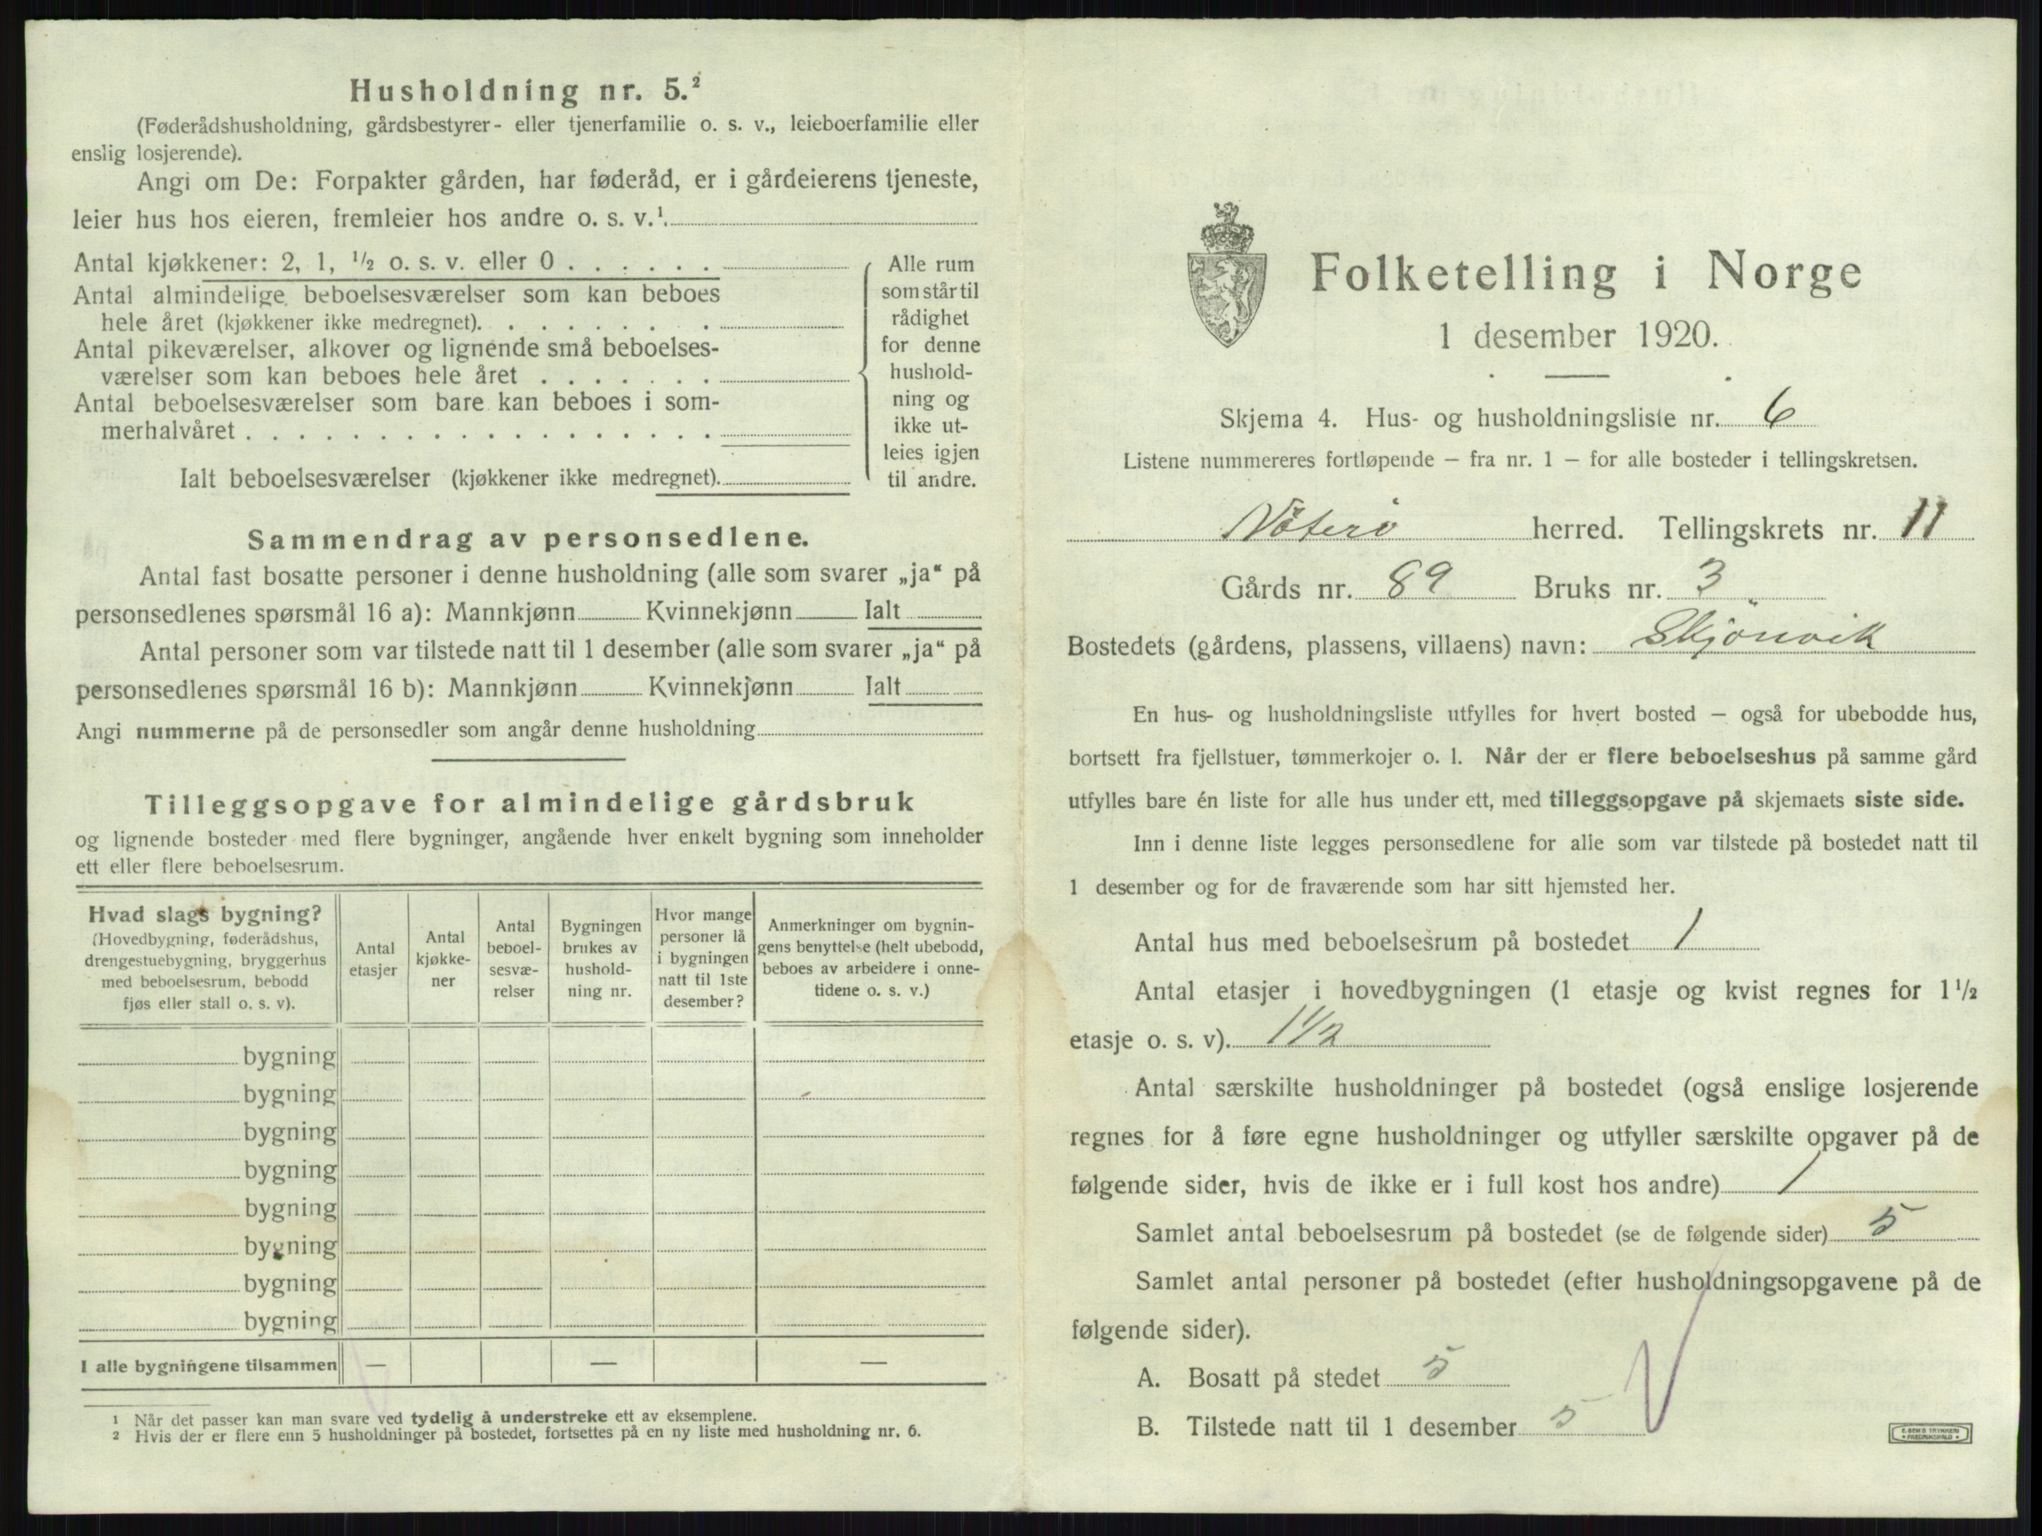 Husholdning nr. 5.²
(Føderådshusholdning, gårdsbestyrer- eller tjenerfamilie o. s. v., leieboerfamilie eller
enslig losjerende).
Angi om De: Forpakter gården, har føderåd, er i gårdeierens tjeneste,
leier hus hos eieren, fremleier hos andre o. s. v.¹
Antal kjøkkener: 2, 1, ½ o. s. v. eller 0 . . . . . .
Antal almindelige beboelsesværelser som kan beboes
hele året (kjøkkener ikke medregnet). . . . . . . .
Antal pikeværelser, alkover og lignende små beboelses-
værelser som kan beboes hele året . . . . . . .
Antal beboelsesværelser som bare kan beboes i som-
merhalvåret . . . . . . . . . . . . . . . . . .
Ialt beboelsesværelser (kjøkkener ikke medregnet).
Alle rum
som står til
rådighet
for denne
hushold-
ning og
ikke ut-
leies igjen
til andre.
Sammendrag av personsedlene.
Antal fast bosatte personer i denne husholdning (alle som svarer „ja“ på
personsedlenes spørsmål 16 a): Mannkjønn Kvinnekjønn Ialt
Antal personer som var tilstede natt til 1 desember (alle som svarer „ja“ på
personsedlenes spørsmål 16 b): Mannkjønn Kvinnekjønn Ialt
Angi nummerne på de personsedler som angår denne husholdning
Tilleggsopgave for almindelige gårdsbruk
og lignende bosteder med flere bygninger, angående hver enkelt bygning som inneholder
ett eller flere beboelsesrum.
Hvad slags bygning?
(Hovedbygning, føderådshus,
drengestuebygning, bryggerhus
med beboelsesrum, bebodd
fjøs eller stall o. s. v.).
Antal
etasjer
Antal
kjøkke-
ner
Antal
beboel-
sesvæ-
relser
Bygningen
brukes av
hushold-
ning nr.
Hvor mange
personer lå
i bygningen
natt til 1ste
desember?
Anmerkninger om bygnin-
gens benyttelse (helt ubebodd,
beboes av arbeidere i onne-
tidene o. s. v.)
bygning
bygning
bygning
bygning
bygning
bygning
bygning
bygning
I alle bygningene tilsammen — — —
¹ Når det passer kan man svare ved tydelig å understreke ett av eksemplene.
² Hvis der er flere enn 5 husholdninger på bostedet, fortsettes på en ny liste med husholdning nr. 6.
Folketelling i Norge
1 desember 1920.
Skjema 4. Hus- og husholdningsliste nr. 6
Listene nummereres fortløpende — fra nr. 1 — for alle bosteder i tellingskretsen.
Nøterø herred. Tellingskrets nr. 11
Gårds nr. 89 Bruks nr. 3
Bostedets (gårdens, plassens, villaens) navn: Skjønvik
En hus- og husholdningsliste utfylles for hvert bosted — også for ubebodde hus,
bortsett fra fjellstuer, tømmerkojer o. l. Når der er flere beboelseshus på samme gård
utfylles bare én liste for alle hus under ett, med tilleggsopgave på skjemaets siste side.
Inn i denne liste legges personsedlene for alle som var tilstede på bostedet natt til
1 desember og for de fraværende som har sitt hjemsted her.
Antal hus med beboelsesrum på bostedet 1
Antal etasjer i hovedbygningen (1 etasje og kvist regnes for 1½
etasje o. s. v). 1 1/2
Antal særskilte husholdninger på bostedet (også enslige losjerende
regnes for å føre egne husholdninger og utfyller særskilte opgaver på de
følgende sider, hvis de ikke er i full kost hos andre) 1
Samlet antal beboelsesrum på bostedet (se de følgende sider) 5
Samlet antal personer på bostedet (efter husholdningsopgavene på de
følgende sider).
A. Bosatt på stedet 5
B. Tilstede natt til 1 desember 5